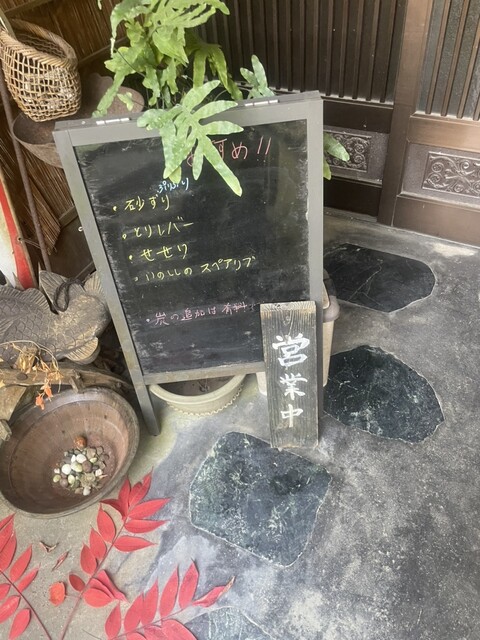 すめ!!
ぷりぷり
・砂ずり
・とりレバー
・せせり
・いのししの スペアリブ
・炭の追加は有料
営業中